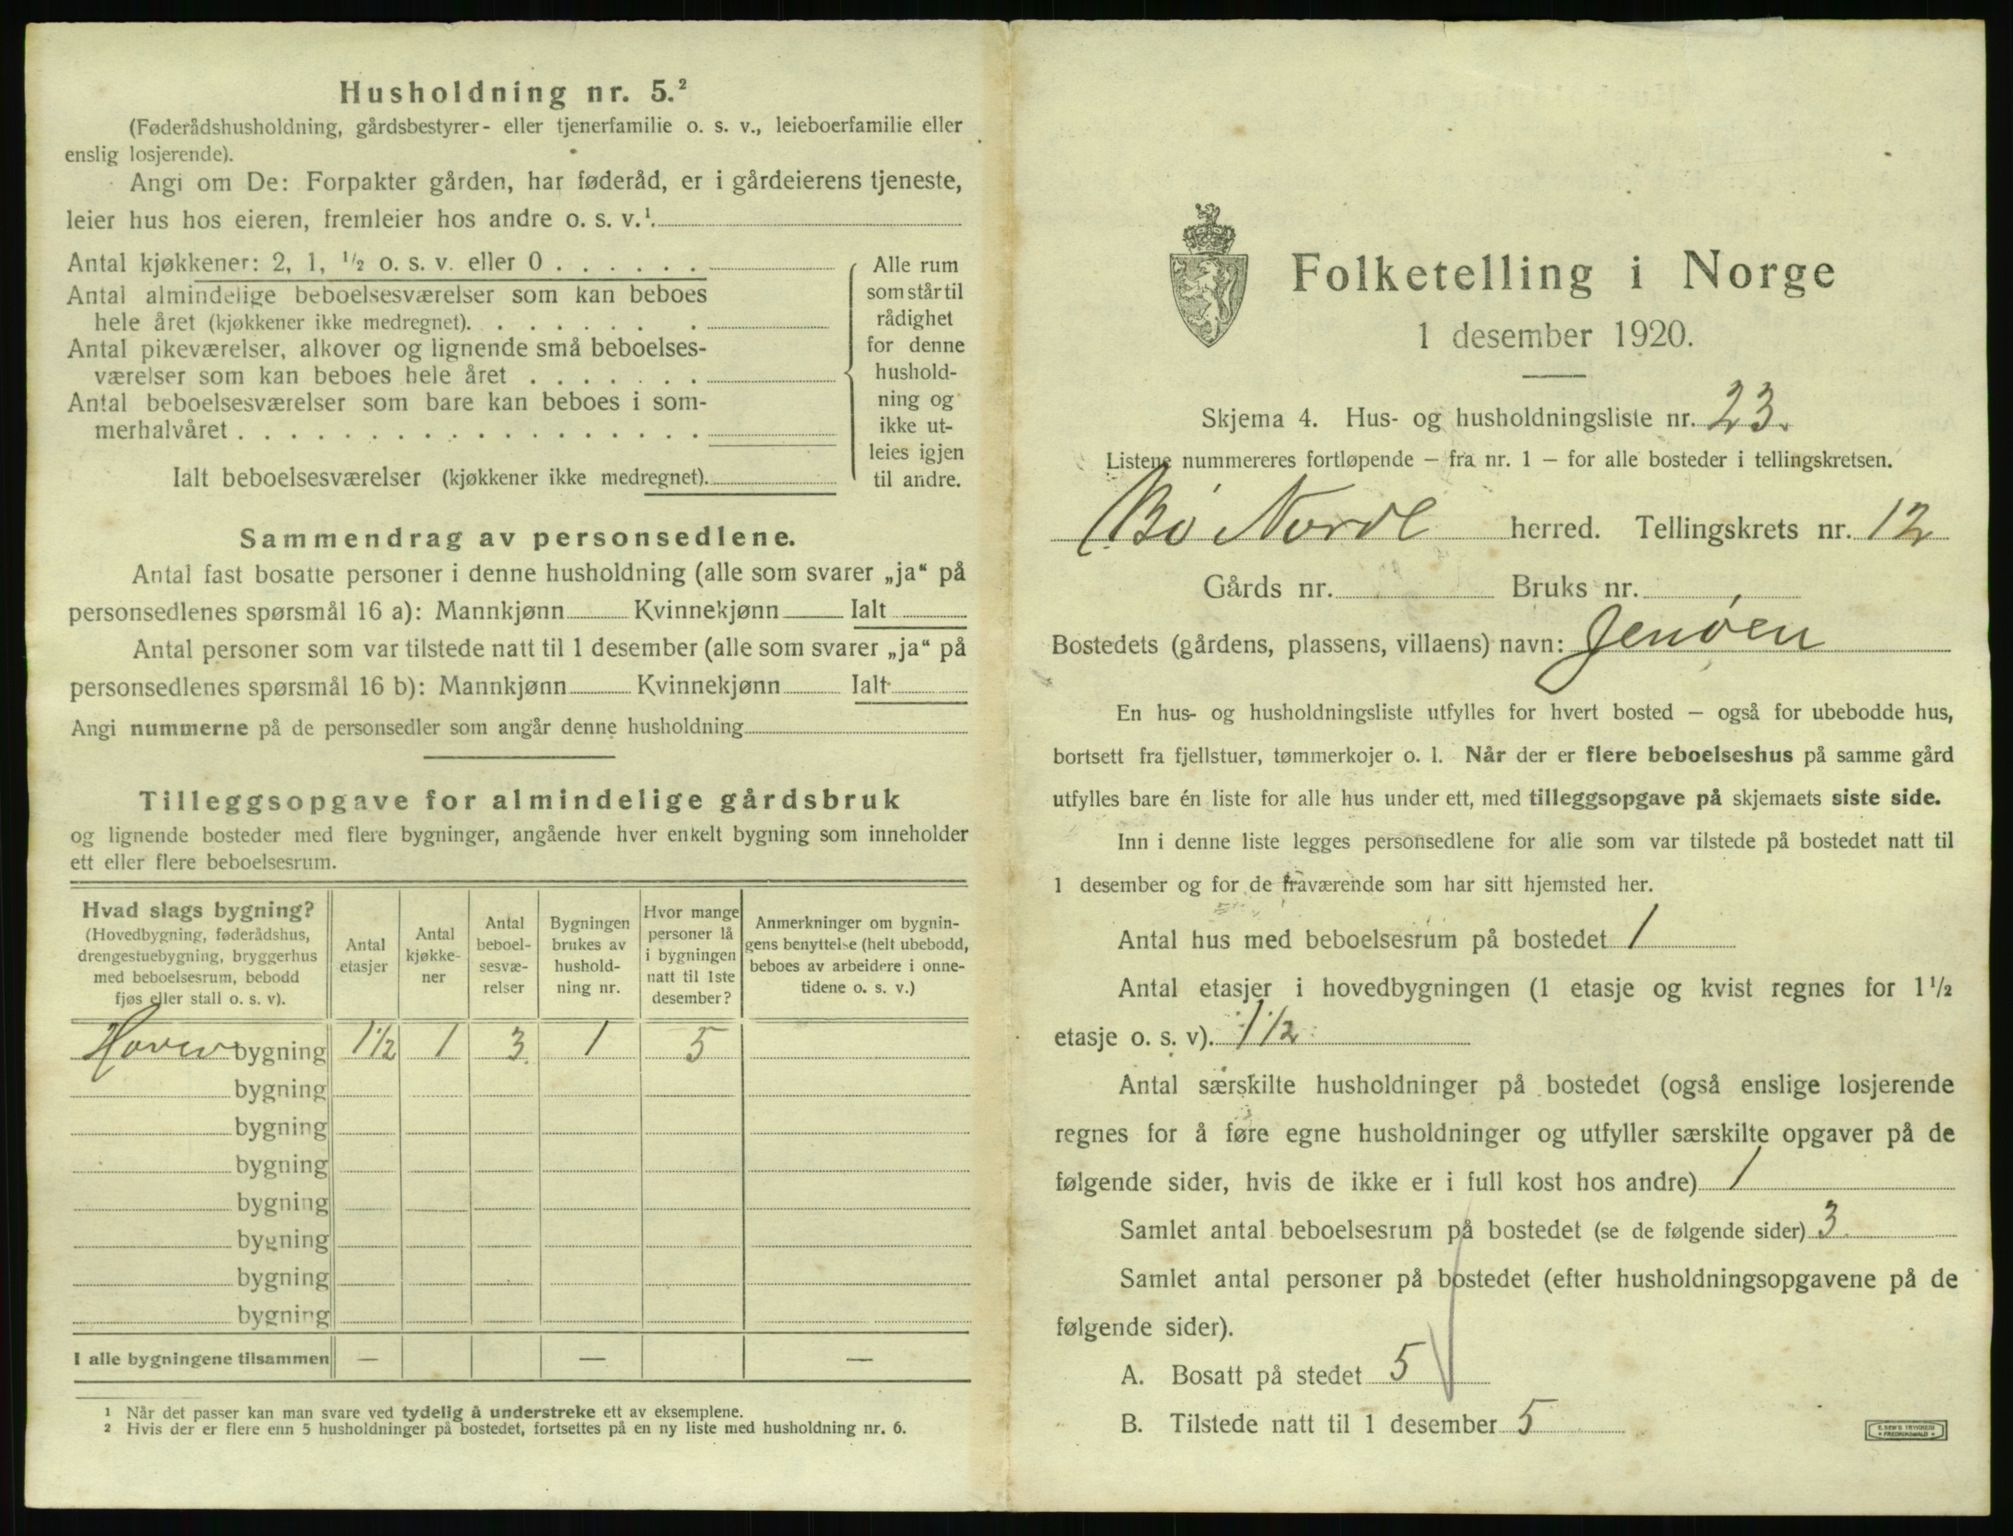 Husholdning nr. 5.²
(Føderådshusholdning, gårdsbestyrer- eller tjenerfamilie o. s. v., leieboerfamilie eller
enslig losjerende).
Angi om De: Forpakter gården, har føderåd, er i gårdeierens tjeneste,
leier hus hos eieren, fremleier hos andre o. s. v.¹
Antal kjøkkener: 2, 1, ½ o. s. v. eller 0
Antal almindelige beboelsesværelser som kan beboes
hele året (kjøkkener ikke medregnet).
Antal pikeværelser, alkover og lignende små beboelses-
værelser som kan beboes hele året
Antal beboelsesværelser som bare kan beboes i som-
merhalvåret
Ialt beboelsesværelser (kjøkkener ikke medregnet).
Alle rum
som står til
rådighet
for denne
hushold-
ning og
ikke ut-
leies igjen
til andre.
Sammendrag av personsedlene.
Antal fast bosatte personer i denne husholdning (alle som svarer „ja“ på
personsedlenes spørsmål 16 a): Mannkjønn Kvinnekjønn Ialt
Antal personer som var tilstede natt til 1 desember (alle som svarer „ja“ på
personsedlenes spørsmål 16 b): Mannkjønn Kvinnekjønn Ialt
Angi nummerne på de personsedler som angår denne husholdning
Tilleggsopgave for almindelige gårdsbruk
og lignende bosteder med flere bygninger, angående hver enkelt bygning som inneholder
ett eller flere beboelsesrum.
Hvad slags bygning?
(Hovedbygning, føderådshus,
drengestuebygning, bryggerhus
med beboelsesrum, bebodd
fjøs eller stall o. s. v).
Antal
etasjer
Antal
kjøkke-
ner
Antal
beboel-
sesvæ-
relser
Bygningen
brukes av
hushold-
ning nr.
Hvor mange
personer lå
i bygningen
natt til 1ste
desember?
Anmerkninger om bygnin-
gens benyttelse (helt ubebodd,
beboes av arbeidere i onne-
tidene o. s. v.)
Hovedbygning 1½ 1 3 1 5
bygning
bygning
bygning
bygning
bygning
bygning
bygning
I alle bygningene tilsammen — — —
¹ Når det passer kan man svare ved tydelig å understreke ett av eksemplene.
² Hvis der er flere enn 5 husholdninger på bostedet, fortsettes på en ny liste med husholdning nr. 6.
Folketelling i Norge
1 desember 1920.
Skjema 4. Hus- og husholdningsliste nr. 23.
Listene nummereres fortløpende — fra nr. 1 — for alle bosteder i tellingskretsen.
Bø Nordl herred. Tellingskrets nr. 12
Gårds nr. Bruks nr.
Bostedets (gårdens, plassens, villaens) navn: Jenøen
En hus- og husholdningsliste utfylles for hvert bosted — også for ubebodde hus,
bortsett fra fjellstuer, tømmerkojer o. l. Når der er flere beboelseshus på samme gård
utfylles bare én liste for alle hus under ett, med tilleggsopgave på skjemaets siste side.
Inn i denne liste legges personsedlene for alle som var tilstede på bostedet natt til
1 desember og for de fraværende som har sitt hjemsted her.
Antal hus med beboelsesrum på bostedet 1
Antal etasjer i hovedbygningen (1 etasje og kvist regnes for 1½
etasje o. s. v). 1½
Antal særskilte husholdninger på bostedet (også enslige losjerende
regnes for å føre egne husholdninger og utfyller særskilte opgaver på de
følgende sider, hvis de ikke er i full kost hos andre) 1
Samlet antal beboelsesrum på bostedet (se de følgende sider) 3
Samlet antal personer på bostedet (efter husholdningsopgavene på de
følgende sider).
A. Bosatt på stedet 5
B. Tilstede natt til 1 desember 5